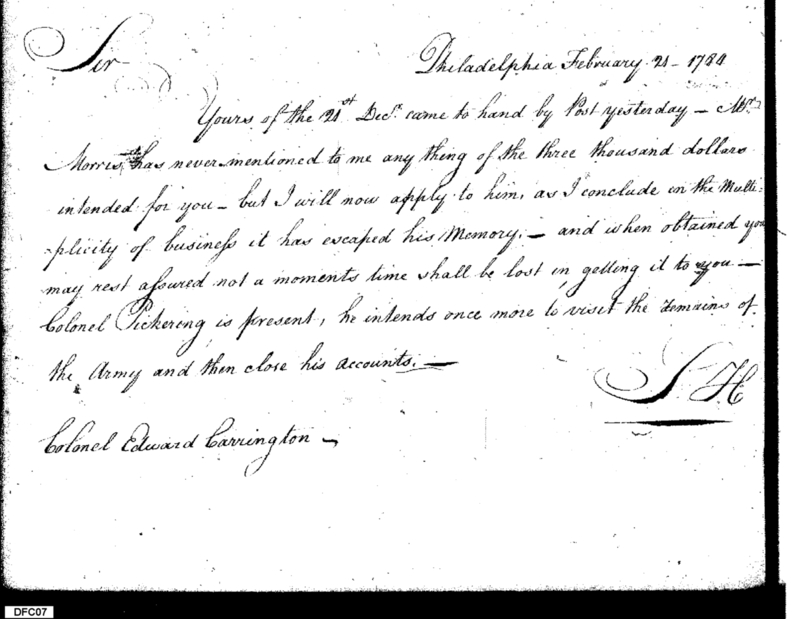 Sir
Philadelphia February 21 - 1784
Yours of the 21st Decr. came to hand by Post yesterday — Mr.
Morris has never mentioned to me any thing of the three thousand dollars
intended for you — but I will now apply to him, as I conclude in the Multi=
=plicity of business it has escaped his Memory. — and when obtained you
may rest assured not a moments time shall be lost in getting it to you —
Colonel Pickering is present, he intends once more to visit the remains of
the Army and then close his accounts. —
S H
Colonel Edward Carrington —
DFC07